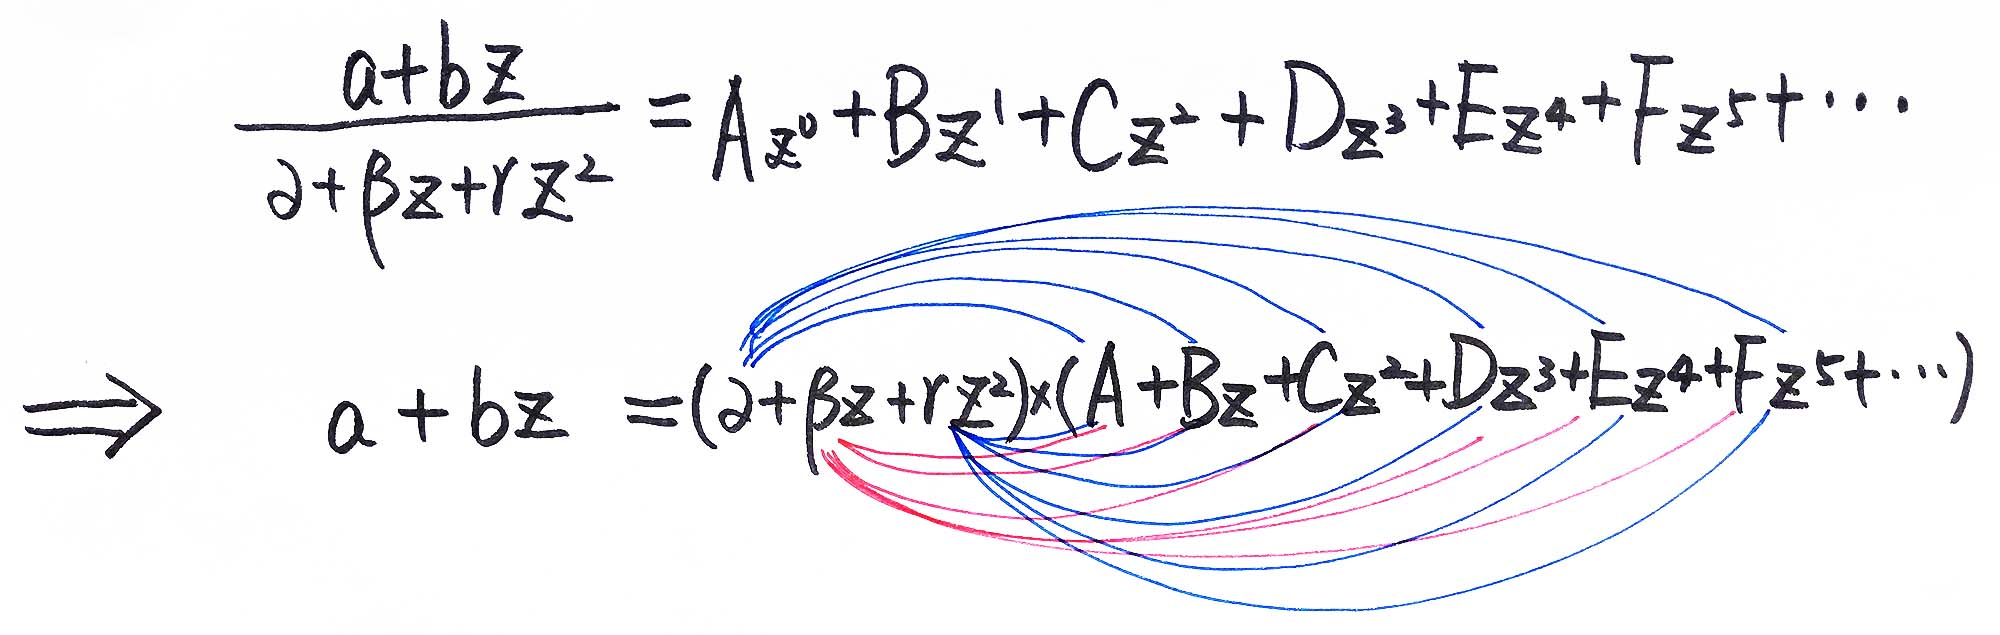 a+bz / ∂+βz+rz² = Az⁰+Bz¹+Cz²+Dz³+Ez⁴+Fz⁵+···
⟹ a+bz =(∂+βz+rz²)×(A+Bz+Cz²+Dz³+Ez⁴+Fz⁵+···)